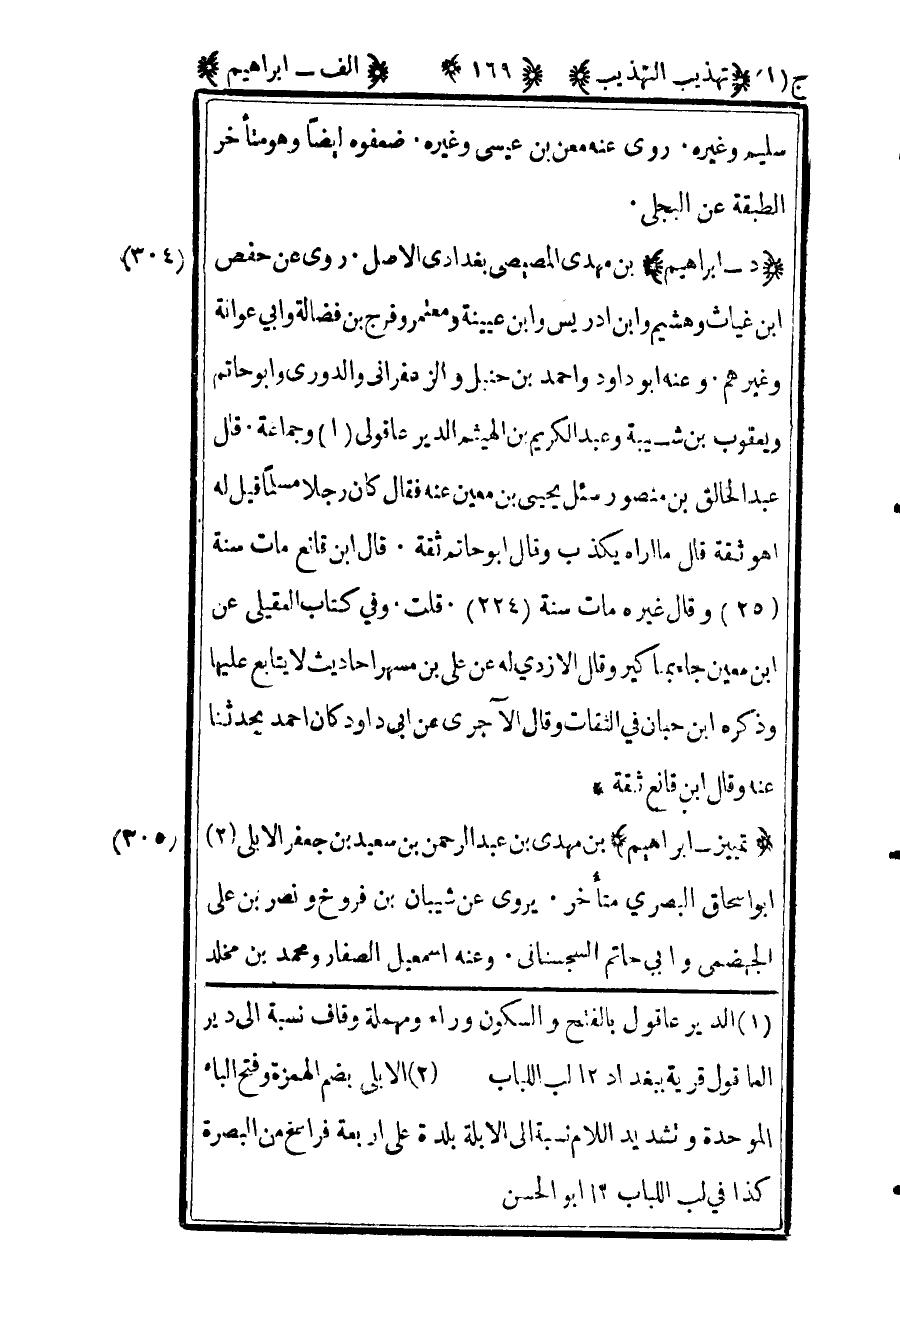 ج (١) ﴿تهذيب التهذيب﴾ ﴿١٦٩﴾ ﴿الف ــ ابراهيم﴾
سليم وغيره · روى عنه معن بن عيسى وغيره · ضعفوه ايضاً وهو متأخر
الطبقة عن البجلى ·
(٣٠٤) ﴿د ــ ابراهيم﴾ بن مهدى المصيصى بغدادى الاصل · روى عن حفص
ابن غياث وهشيم وابن ادريس وابن عيينة ومعتمر وفرج بن فضالة وابي عوانة
وغيرهم · وعنه ابو داود واحمد بن حنبل والزعفرانى والدورى وابو حاتم
ويعقوب بن شيبة وعبد الكريم بن الهيثم الدير عاقولى (١) وجماعة · قال
عبد الخالق بن منصور سئل يحيى بن معين عنه فقال كان رجلا مسلماً قيل له
اهو ثقة قال ما اراه يكذب وقال ابو حاتم ثقة · قال ابن قانع مات سنة
(٢٥) وقال غيره مات سنة (٢٢٤) · قلت · وفي كتاب العقيلى عن
ابن معين جاء بمناكير وقال الازدي له عن على بن مسهر احاديث لا يتابع عليها
وذكره ابن حبان في الثقات وقال الآجرى عن ابى داود كان احمد يحدثنا
عنه وقال ابن قانع ثقة *
(٣٠٥) ﴿تمييز ــ ابراهيم﴾ بن مهدى بن عبد الرحمن بن سعيد بن جعفر الابلى (٢)
ابو اسحاق البصري متأخر · يروى عن شيبان بن فروخ ونصر بن على
الجهضمى وابي حاتم السجستانى · وعنه اسمعيل الصفار ومحمد بن مخلد
(١) الدير عاقول بالفتح والسكون وراء ومهملة وقاف نسبة الى دير
العاقول قرية ببغداد ١٢ لب اللباب (٢) الابلى بضم الهمزة وفتح الباء
الموحدة وتشديد اللام نسبة الى الابلة بلدة على اربعة فراسخ من البصرة
كذا في لب اللباب ١٢ ابو الحسن